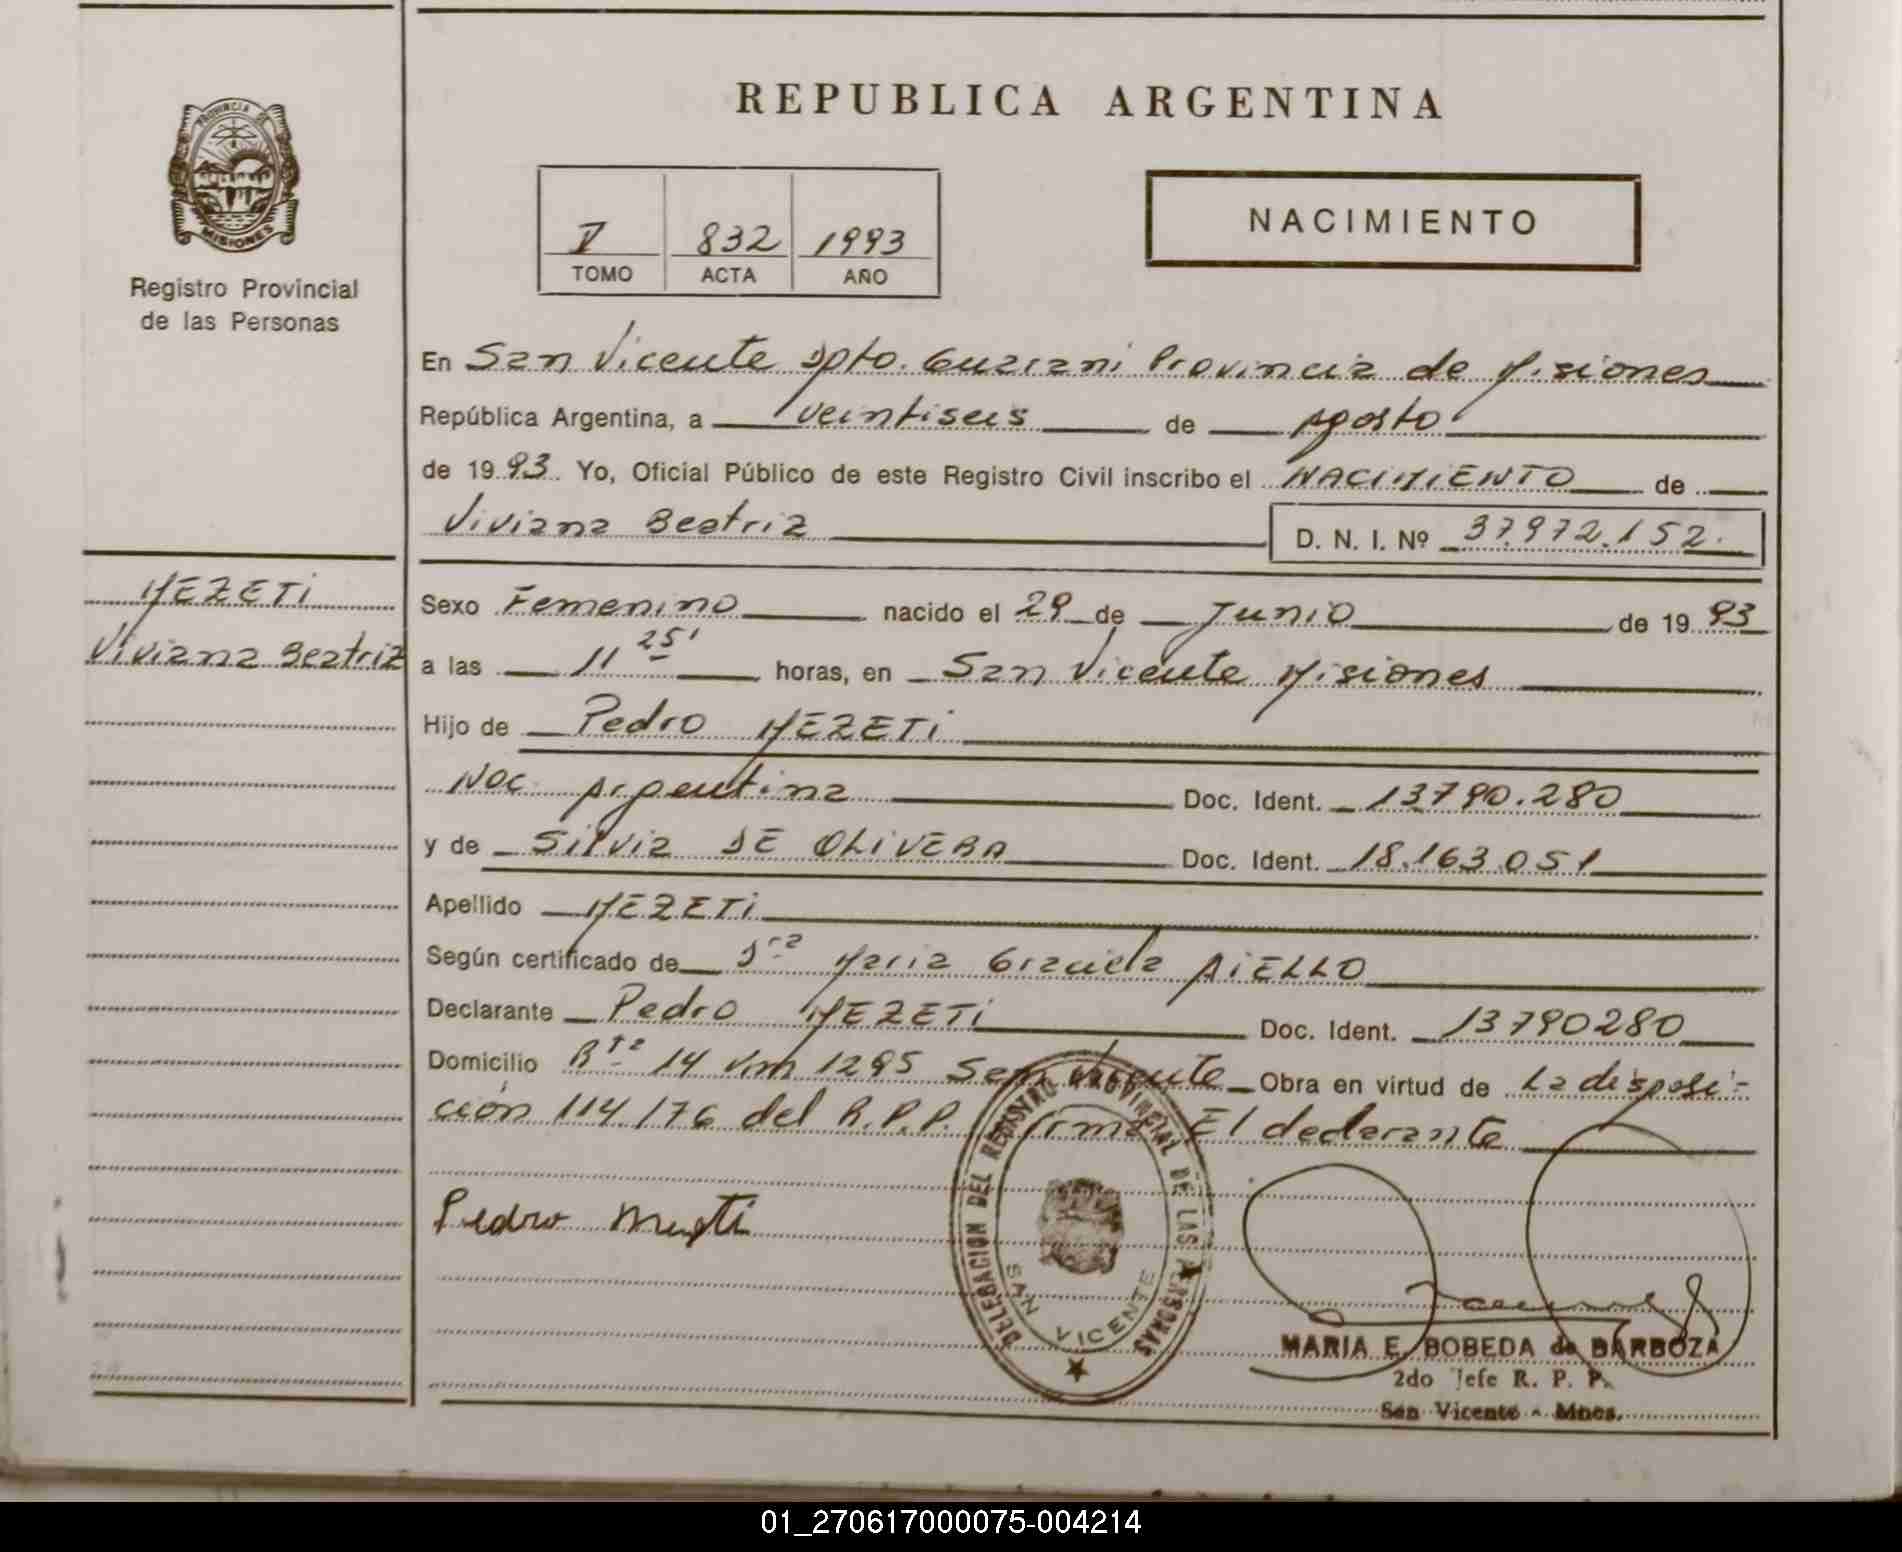 REPUBLICA ARGENTINA
PROVINCIA DE
MISIONES
Registro Provincial
de las Personas
V 832 1993
TOMO ACTA AÑO
NACIMIENTO
En San Vicente Dpto. Guarani Provincia de Misiones
República Argentina, a veintiseis de Agosto
de 1993. Yo, Oficial Público de este Registro Civil inscribo el NACIMIENTO de
Viviana Beatriz D. N. I. Nº 37.972.152.
MEZETI
Viviana Beatriz
Sexo Femenino nacido el 29 de Junio de 1993
a las 11 25' horas, en San Vicente Misiones
Hijo de Pedro MEZETI
Nac. Argentina Doc. Ident. 13790.280
y de Silvia DE OLIVERA Doc. Ident. 18.163.051
Apellido MEZETI
Según certificado de Dra Maria Graciela AIELLO
Declarante Pedro MEZETI Doc. Ident. 13790280
Domicilio Rta 14 Km 1295 San Vicente Obra en virtud de La disposi-
ción 114/76 del R.P.P. Firma El declarante
Pedro
DELEGACION DEL REGISTRO PROVINCIAL DE LAS PERSONAS
SAN VICENTE
MARIA E. BOBEDA de BARBOZA
2do Jefe R. P. P.
San Vicente - Mnes.
01_270617000075-004214